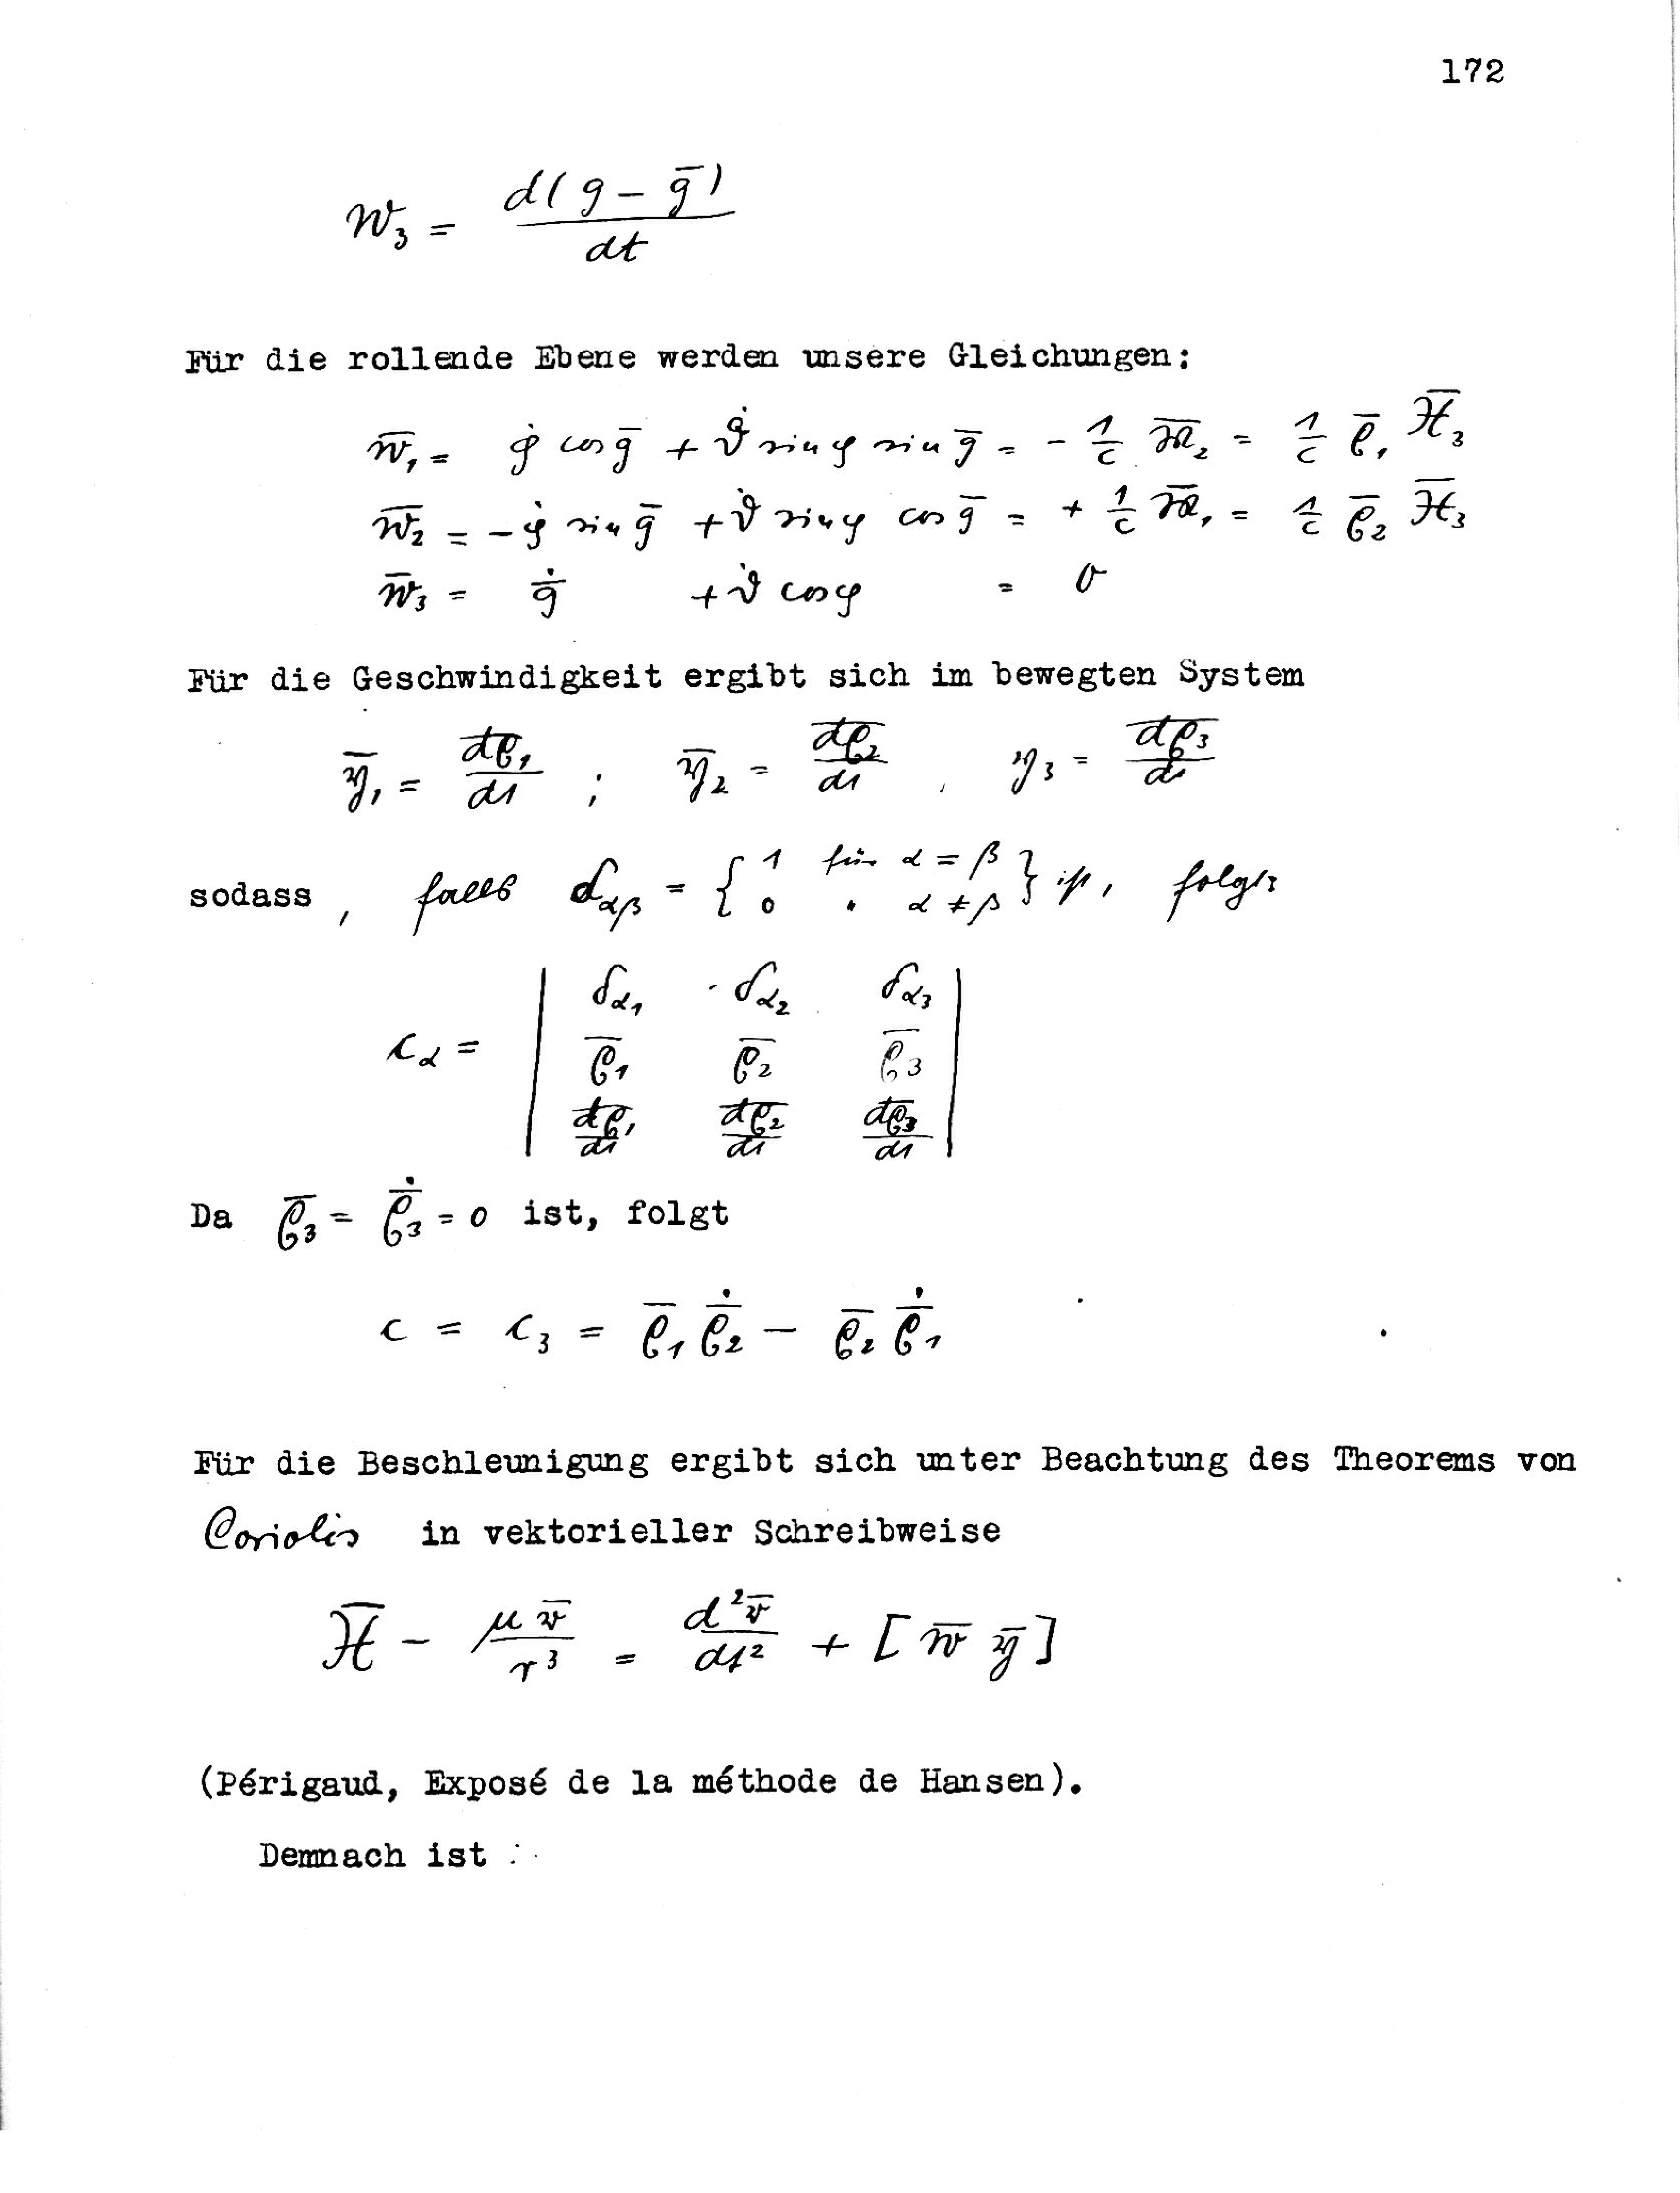 172
w₃ = d(g − ḡ) / dt
Für die rollende Ebene werden unsere Gleichungen:
w̄₁ = φ̇ cos ḡ + ϑ̇ sin φ sin ḡ = − 1/c 𝔐̄₂ = 1/c ρ̄₁ H̄₃
w̄₂ = − φ̇ sin ḡ + ϑ̇ sin φ cos ḡ = + 1/c 𝔐̄₁ = 1/c ρ̄₂ H̄₃
w̄₃ = ḡ̇ + ϑ̇ cos φ = 0
Für die Geschwindigkeit ergibt sich im bewegten System
ȳ₁ = dρ̄₁/dt ; ȳ₂ = dρ̄₂/dt , y₃ = dρ̄₃/dt
sodass , falls δαβ = { 1 für α = β 0 " α ≠ β } ist, folgt:
cα = | δα₁ δα₂ δα₃ |
| ρ̄₁ ρ̄₂ ρ̄₃ |
| dρ̄₁/dt dρ̄₂/dt dρ̄₃/dt |
Da ρ̄₃ = ρ̄̇₃ = 0 ist, folgt
c = c₃ = ρ̄₁ ρ̄̇₂ − ρ̄₂ ρ̄̇₁
Für die Beschleunigung ergibt sich unter Beachtung des Theorems von
Coriolis in vektorieller Schreibweise
H̄ − μ r̄ / r³ = d² r̄ / dt² + [ w̄ ȳ ]
(Périgaud, Exposé de la méthode de Hansen).
Demnach ist :